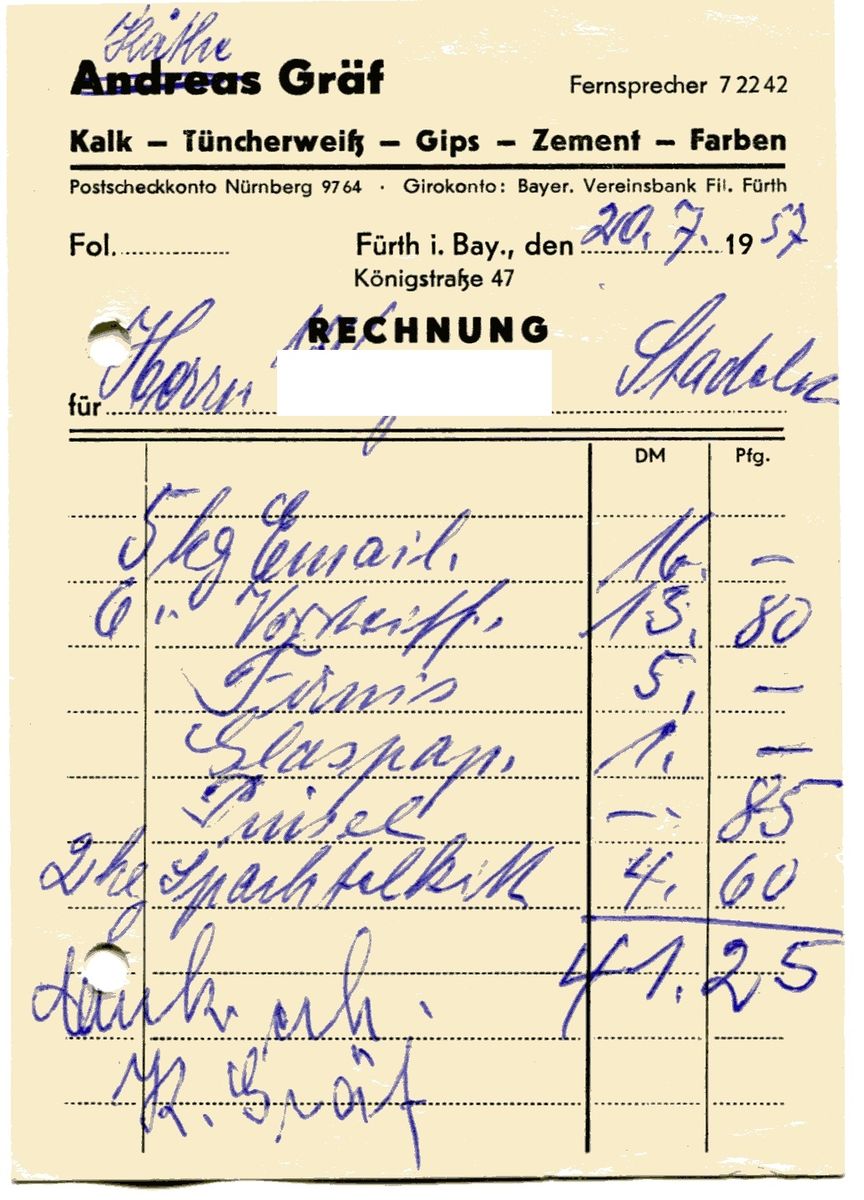 Käthe
Andreas Gräf
Fernsprecher 7 22 42
Kalk – Tüncherweiß – Gips – Zement – Farben
Postscheckkonto Nürnberg 9764 · Girokonto: Bayer. Vereinsbank Fil. Fürth
Fol. Fürth i. Bay., den 20. 7. 1957
Königstraße 47
RECHNUNG
für Herrn Stadeln
DM Pfg.
5 kg Email. 16. –
6 " Vorstreichf. 13. 80
Firnis 5, –
Glaspap. 1. –
Pinsel –. 85
2 kg Spachtelkitt 4. 60
41. 25
Dank. erh.
K. Gräf